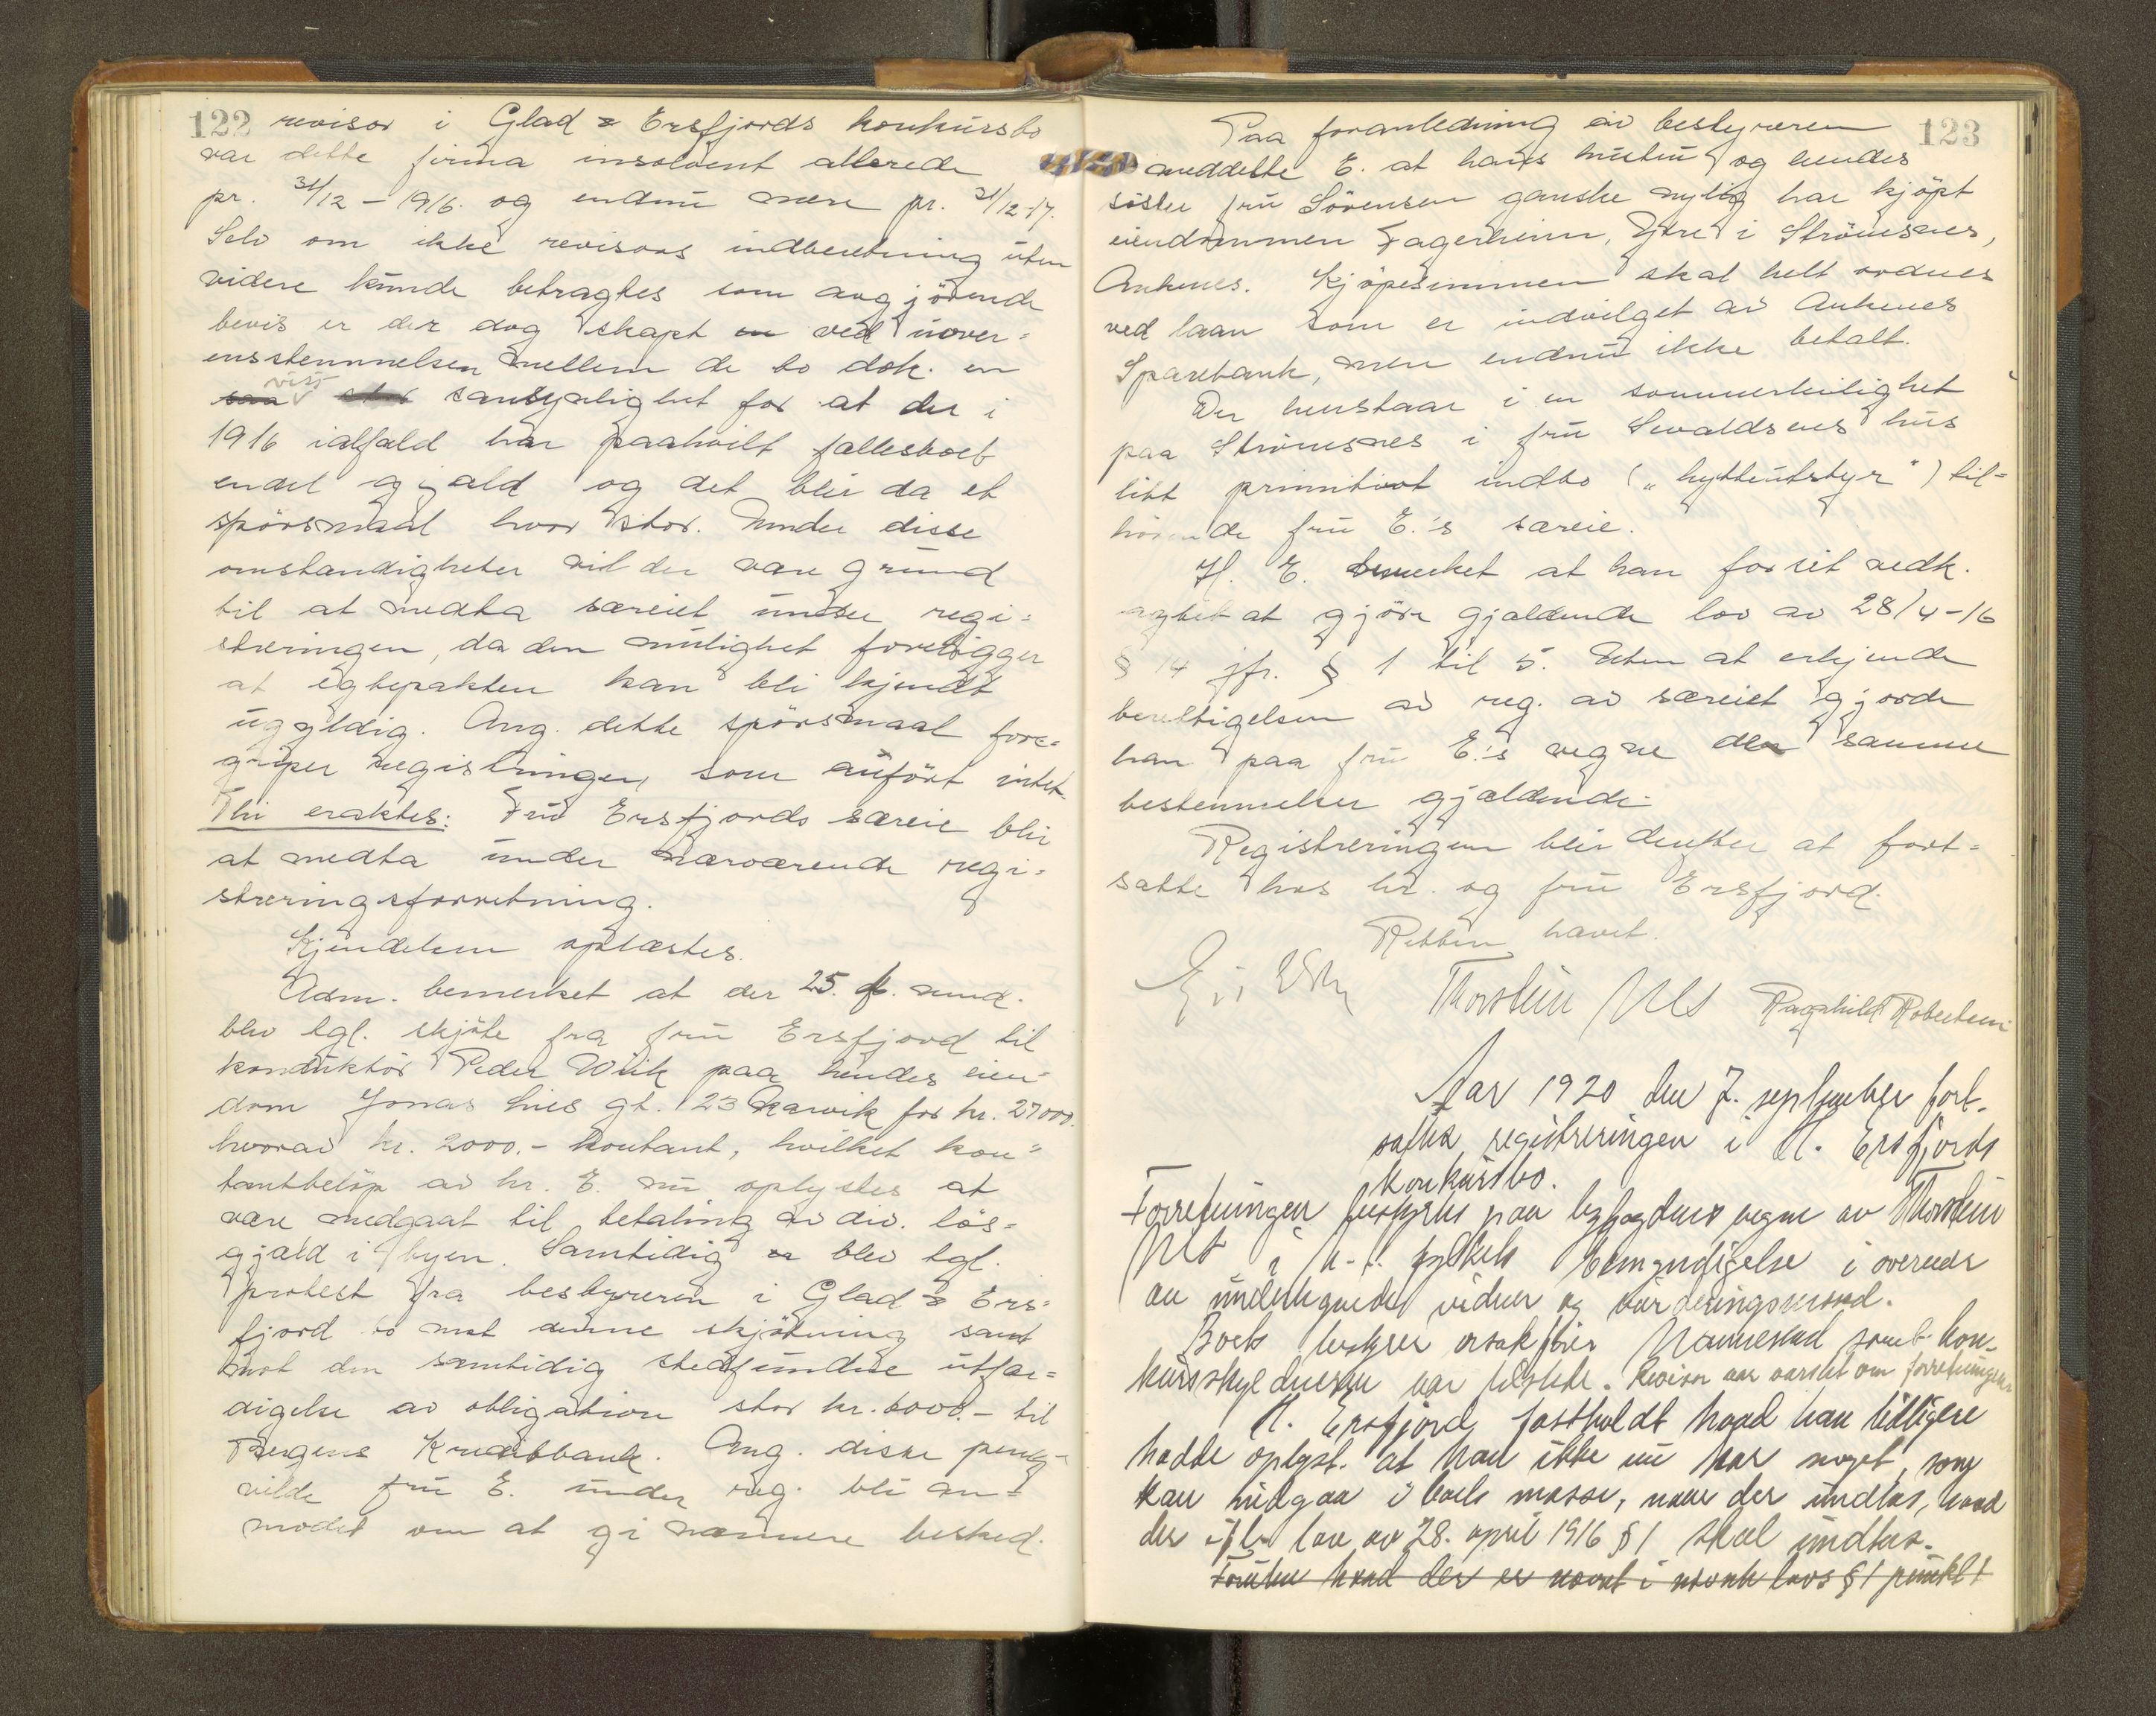 122 revisor i Glad & Ersfjords konkursbo
var dette firma insolvent allerede
pr. 31/12 - 1916. og endnu mere pr. 31/12-17.
Selv om ikke revisors indberetning uten
videre kunde betragtes som avgjörende
bevis er der dog skapt en ved uover=
ensstemmelsen mellem de to dok. en
saa viss stor sansynlighet for at der i
1916 ialfald har paahvilt fællesboet
endel gjæld og det blir da et
spörsmaal hvor stor. Under disse
omstændigheter vil der være grund
til at medta særeiet under regi=
streringen, da den mulighet foreligger
at egtepakten kan bli kjendt
ugyldig. Ang. dette spörsmaal fore=
griper registringen, som anfört intet.
Thi eraktes: Fru Ersfjords særeie blir
at medta under nærværende regi=
streringsforretning.
Kjendelsen oplæstes.
Adm. bemerket at der 25. f. mnd.
blev tgl. skjöte fra fru Ersfjord til
konduktör Peder Wiik paa hendes eien-
dom Jonas hies gt. 23 Narvik for kr. 27000.
hvorav kr. 2000.- kontant, hvilket kon=
tantbelöp av hr. E. nu oplystes at
være medgaat til betaling av div. lös=
gjæld i byen. Samtidig er blev tgl.
protest fra bestyreren i Glad & Ers=
fjord bo mot denne skjötning samt
mot den samtidig stedfundne utfær=
digelse av obligation stor kr. 6000.- til
Bergens Kreditbank. Ang. disse penge
vilde fru E. under reg. bli an=
modet om at gi nærmere besked.
123
Paa foranledning av bestyreren
meddelte E. at hans hustru og hendes
söster fru Sörensen ganske nylig har kjöpt
eiendommen Fagerheim, Ytre i Strömsnes,
Ankenes. Kjöpesummen skal helt ordnes
ved laan som er indvilget av Ankenes
Sparebank, men endnu ikke betalt.
Der henstaar i en sommerleilighet
paa Strömsnes i fru Sivaldsens hus
litt primitivt indbo („hytteutstyr") til=
hörende fru E.'s særeie.
H. E. bemerket at han for sit vedk.
agtet at gjöre gjældende lov av 28/4-16
§ 14 jfr. § 1 til 5. Uten at erkjende
berettigelsen av reg. av særeiet gjorde
han paa fru E.'s vegne de samme
bestemmelser gjældende.
Registreringen blir derefter at fort=
sætte hos hr. og fru Ersfjord.
Retten hævet.
Thorstein Ragnhild Robertsen
Aar 1920 den 7. september fort-
sattes registreringen i H. Ersfjords
konkursbo.
Forretningen bestyrtes paa byfogdens vegne av Thorstein
i h.t. fylkets bemyndigelse i overvær
av undertegnede vidner og vurderingsmænd.
Boets bestyrer orsakförer Nannestad samt kon-
kursskyldneren var tilstede. Revisor var varslet om forretningen.
H. Ersfjord fastholdt hvad han tidligere
hadde oplyst. at han ikke nu har noget, som
kan indgaa i boets masse, naar der undtas, hvad
der ifl. lov av 28. april 1916 § 1 skal undtas.
Foruten hvad der er nævnt i nævnte lovs § 1 punkt 1